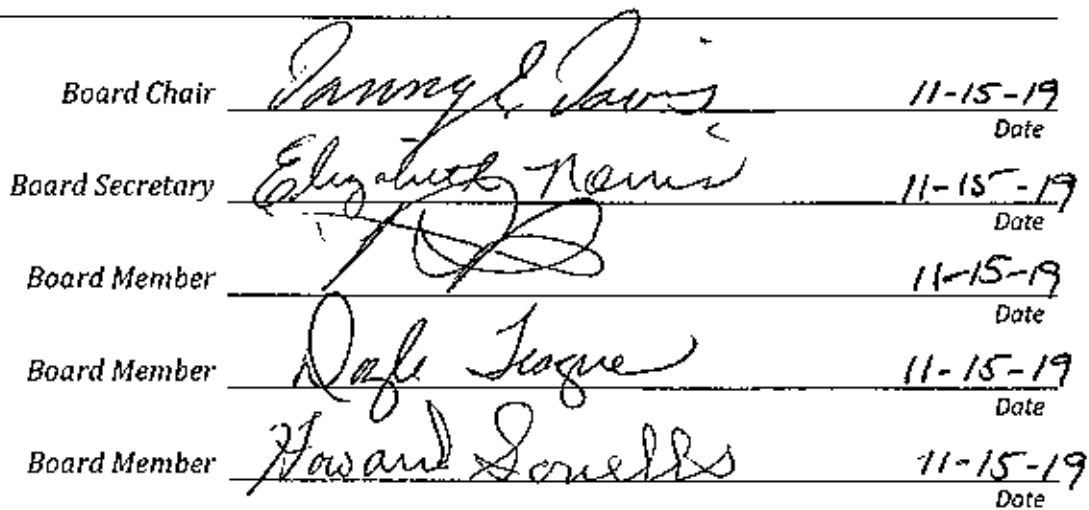 Board Chair Danny L Davis 11-15-19
Date
Board Secretary Elizabeth Norris 11-15-19
Date
Board Member 11-15-19
Date
Board Member Doyle Teague 11-15-19
Date
Board Member Howard 11-15-19
Date